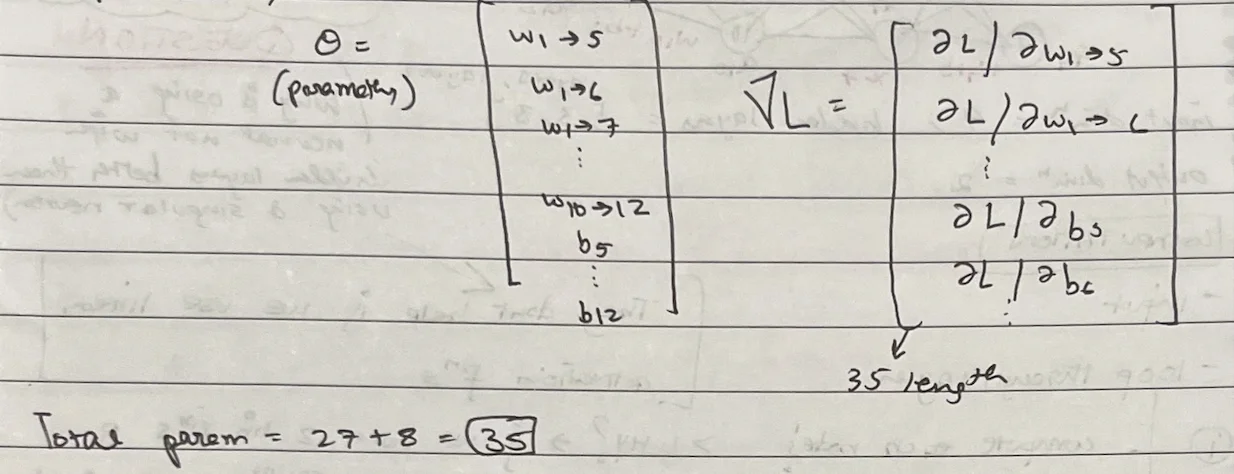 θ =
(parameters)
w1→5
w1→6
w1→7
⋮
w10→12
b5
⋮
b12
∇L =
∂L/∂w1→5
∂L/∂w1→6
⋮
∂L/∂b5
∂L/∂b6
⋮
35 length
Total param = 27+8 = 35